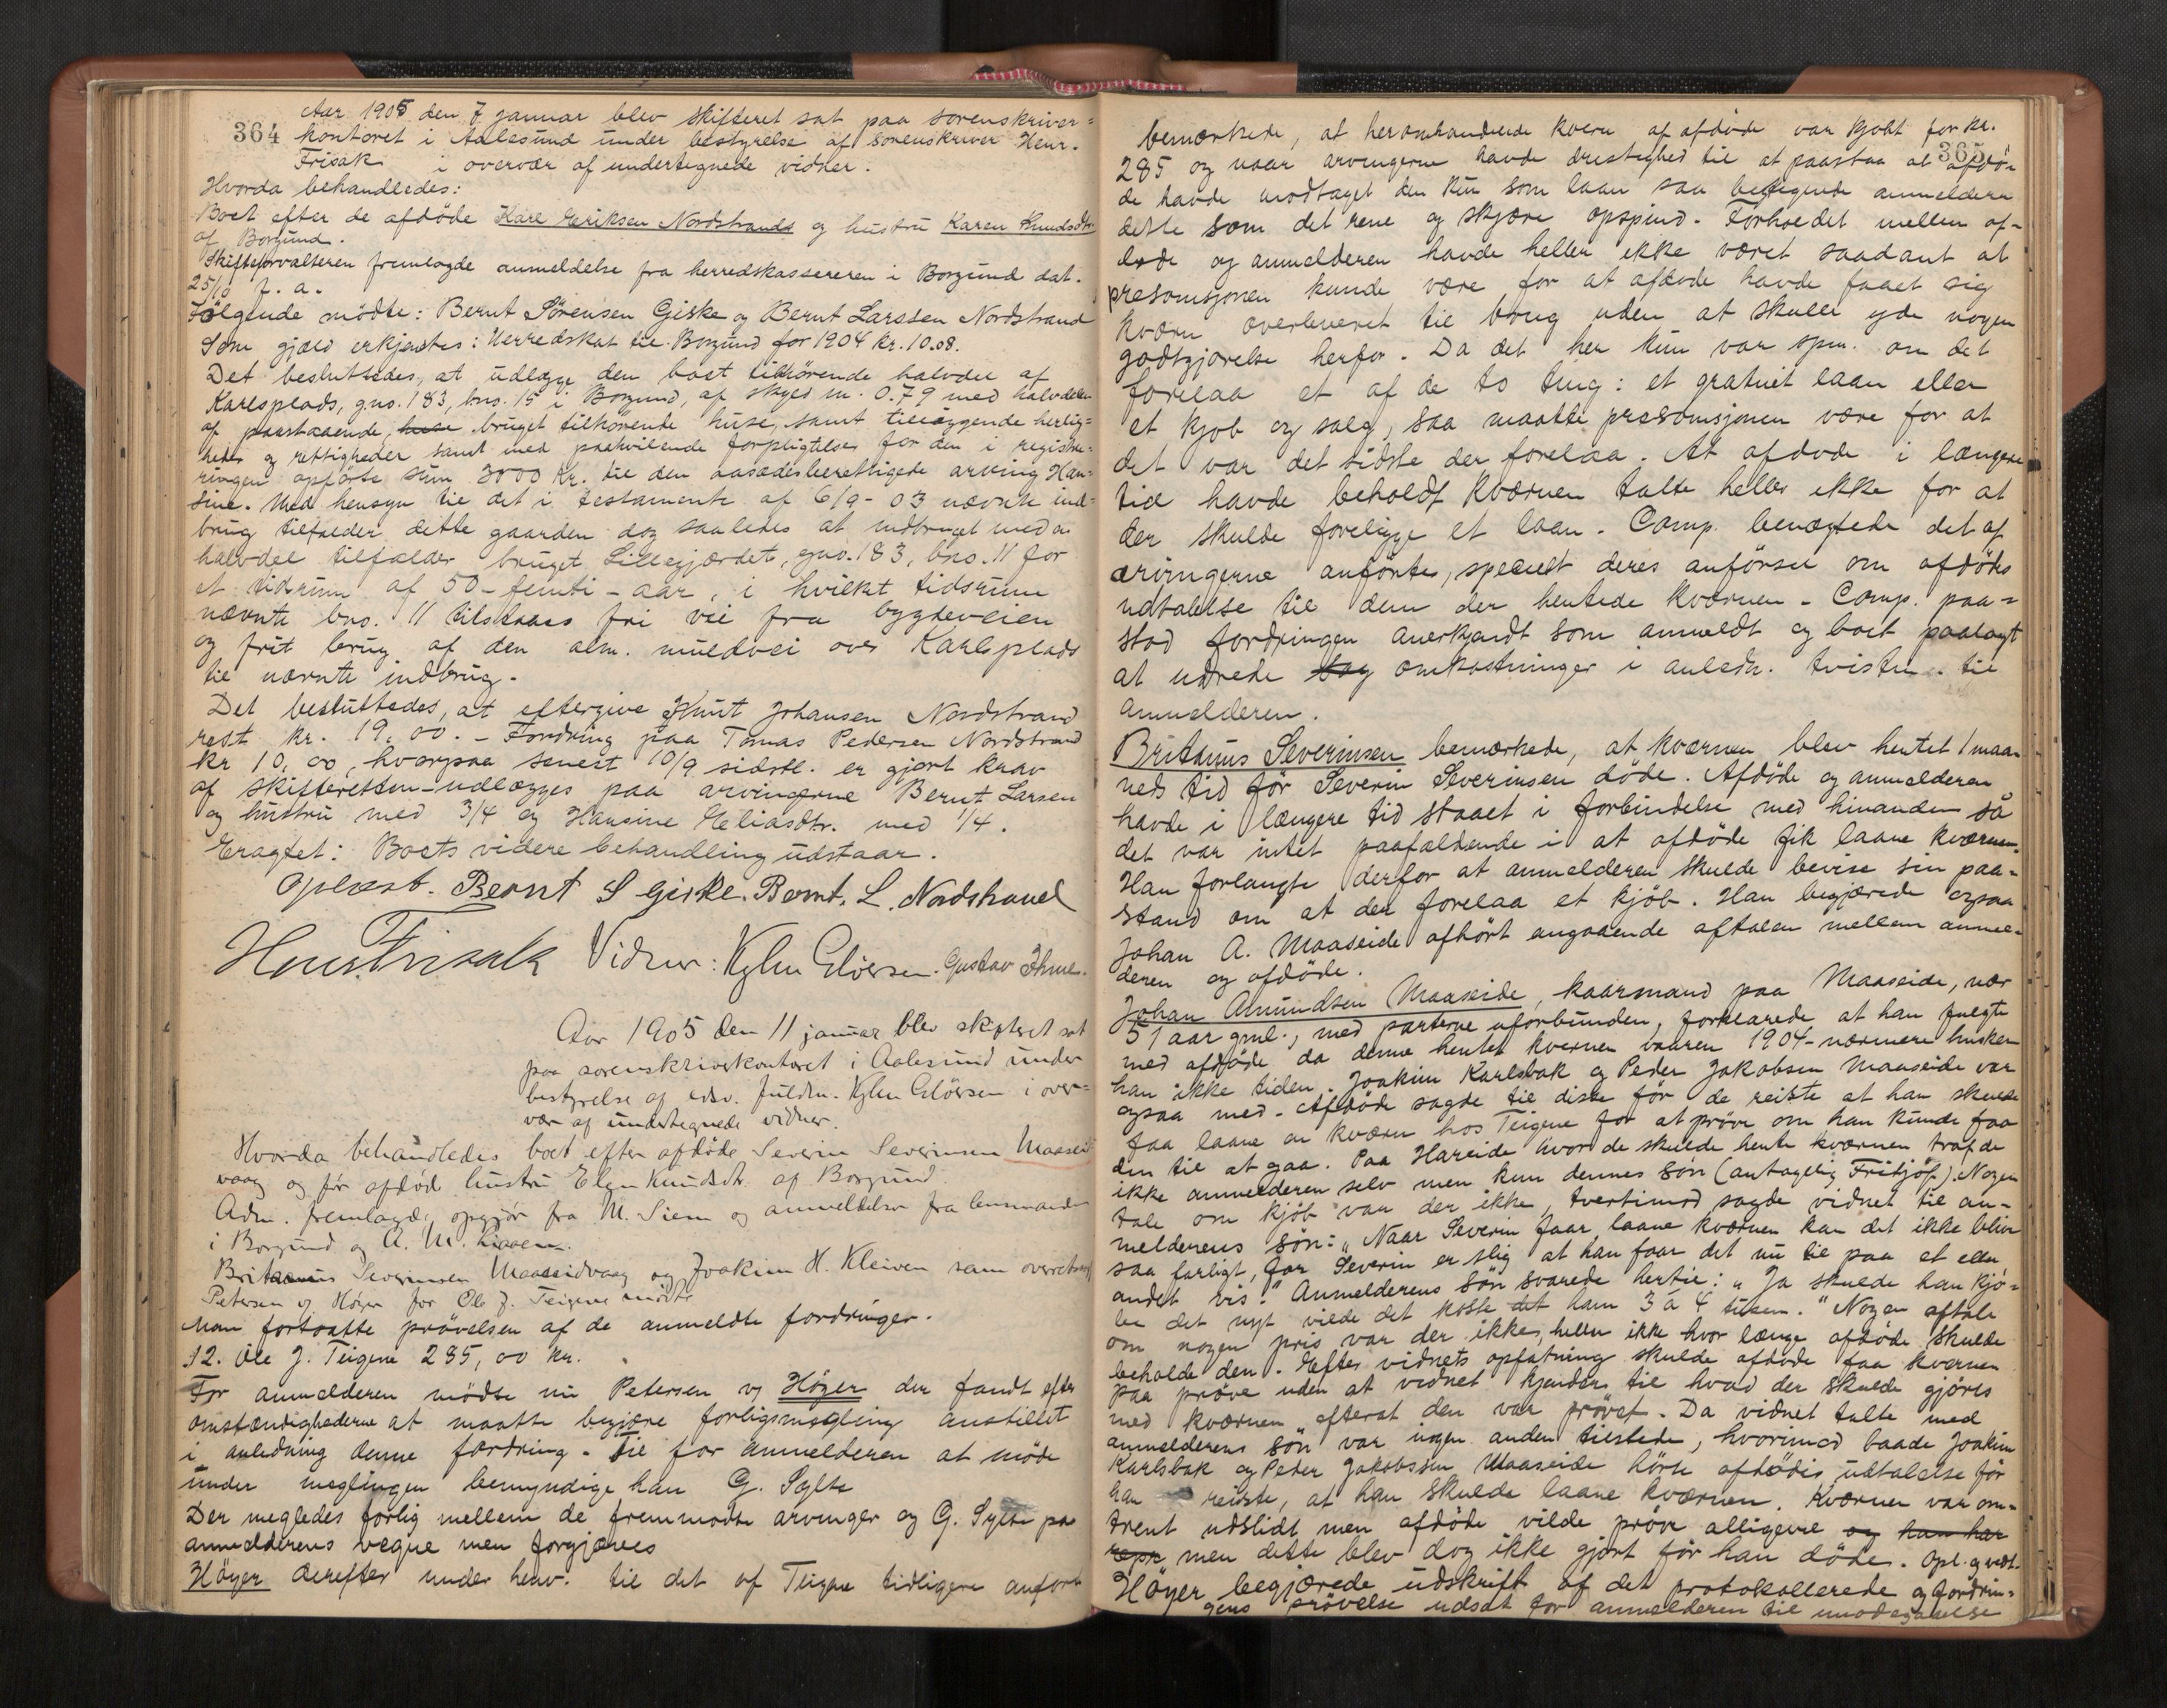 364
Aar 1905 den 7 januar blev skifteret sat paa sorenskriver=
kontoret i Aalesund under bestyrelse af sorenskriver Henr.
Frisak i overvær af undertegnede vidner.
Hvorda behandledes:
Boet efter de afdöde Karl Eriksen Nordstrand og hustru Karen Knudsdtr.
af Borgund.
Skifteforvalteren fremlagde anmeldelse fra herredskassereren i Borgund dat.
25/10 f. a.
Fölgende mödte: Bernt Sörensen Giske og Bernt Larssen Nordstrand
Som gjæld erkjentes: Herredskat til Borgund for 1904 kr. 10.08.
Det besluttedes, at udlægge den boet tilhörende halvdel af
Karlsplads, gno. 183, bno. 15 i Borgund, af skyld m. 0.79 med halvdelen
af paastaaende, huse bruget tilhörende huse, samt tilliggende herlig=
heder og rettigheder samt med paahvilende forpligtelser for den i registre=
ringen opförte sum 3000 kr. til den aasædesberettigede arving Han=
sine. Med hensyn til det i testamente af 6/9-03 nævnte ind=
brug tilfalder dette gaarden dog saaledes at indbruget med en
halvdel tilfalder bruget Lillegjærdet, gno. 183, bno. 11 for
et tidsrum af 50-femti-aar, i hvilket tidsrum
nævnte bno. 11 tilstaaes fri vei fra bygdeveien
og frit brug af den alm. muldvei over Karlsplads
til nævnte indbrug.
Det besluttedes, at eftergive Knut Johansen Nordstrand
rest kr. 19,00. - Fordring paa Tomas Pedersen Nordstrand
kr 10,00, hvorpaa senest 10/9 sidstl. er gjort krav
af skifteretten - udlægges paa arvingerne Bernt Larsen
og hustru med 3/4 og Hansine Eliasdtr. med 1/4.
Eragtet: Boets videre behandling udstaar.
Oplæst. Bernt S Giske. Bernt. L. Nordstrand
Henr Frisak Vidner: Kyhn Glöersen. Gustav Ihme.
Aar 1905 den 11 januar blev skifteret sat
paa sorenskriverkontoret i Aalesund under
bestyrelse af edsv. fuldm. Kyhn Glöersen i over=
vær af undertegnede vidner.
Hvorda behandledes boet efter afdöde Severin Severinsen Maaseid
vaag og för afdöd hustru Elen Knudsdtr. af Borgund.
Adm. fremlagde opgjör fra M. Siem og anmeldelser fra lensmanden
i Borgund og A. M. Liaaen.
Britanus Severinsen Maaseidvaag og Joakim H. Kleiven samt overretssagf
Petersen og Höyer for Ole J. Teigene mödte
Man fortsatte prövelsen af de anmeldte fordringer.
12. Ole J. Teigene 285,00 kr.
For anmelderen mödte nu Petersen og Höyer der fandt efter
omstændighederne at maatte begjære forligsmægling anstillet
i anledning denne fordring. Til for anmelderen at möde
under meglingen bemyndige han G. Sylte
Der megledes forlig mellem de fremmödte arvinger og G. Sylte paa
anmelderens vegne men forgjæves
Höyer derefter under henv. til det af Teigene tidligere anförte
365
bemærkede, at heromhandlede kværn af afdöde var kjöbt for kr.
285 og naar arvingerne havde dristighed til at paastaa at afdö=
de havde modtaget den kun som laan saa betegnede anmelderen
dette som det rene og skjære opspind. Forholdet mellem af=
döde og anmelderen havde heller ikke været saadant at
presomsjonen kunde være for at afdöde havde faaet sig
kværn overleveret til brug uden at skulle yde nogen
godtgjörelse herfor. Da det her kun var spm. om det
forelaa et af de to ting: et gratuit laan eller
et kjöb og salg, saa maatte presomsjonen være for at
det var det sidste der forelaa. At afdöde i længere
tid havde beholdt kværnen talte heller ikke for at
der skulde foreligge et laan. Comp. benægtede det af
arvingerne anförte, specielt deres anförsel om afdödes
udtalelse til dem der hentede kværnen. Comp. paa=
stod fordringen anerkjendt som anmeldt og boet paalagt
at udrede sag omkostninger i anledn. tvisten til
anmelderen.
Britanus Severinsen bemærkede, at kværnen blev hentet 1 maa=
neds tid för Severin Severinsen döde. Afdöde og anmelderen
havde i længere tid staaet i forbindelse med hinanden så
det var intet paafaldende i at afdöde fik laane kværnen.
Han forlangte derfor at anmelderen skulde bevise sin paa=
stand om at der forelaa et kjöb. Han begjærede ogsaa
Johan A. Maaseide afhört angaaende aftalen mellem anmel=
deren og afdöde.
Johan Amundsen Maaseide, kaarmand paa Maaseide, nær
51 aar gml., med parterne uforbunden, forklarede at han fulgte
med afdöde da denne hentet kvernen vaaren 1904 - nærmere husker
han ikke tiden. Joakim Karlsbak og Peder Jakobsen Maaseide var
ogsaa med. Afdöde sagde til disse för de reiste at han skulde
faa laane en kværn hos Teigene for at pröve om han kunde faa
den til at gaa. Paa Hareide hvor de skulde hente kværnen traf de
ikke anmelderen selv men kun dennes sön (antagelig Fridjof). Nogen
tale om kjöb var der ikke, tvertimod sagde vidnet til an=
melderens sön: „Naar Severin faar laane kværnen kan det ikke blive
saa farligt, for Severin er slig at han faar det nu til paa et eller
andet vis." Anmelderens sön svarede hertil: „Ja skulde han kjö=
be det nyt vilde det koste det ham 3 à 4 tusen." Nogen aftale
om nogen pris var der ikke, heller ikke hvor længe afdöde skulde
beholde den. Efter vidnets opfatning skulde afdöde faa kværnen
paa pröve uden at vidnet kjender til hvad der skulde gjöres
med kværnen efterat den var prövet. Da vidnet talte med
anmelderens sön var ingen anden tilstede, hvorimod baade Joakim
Karlsbak og Peder Jakobsen Maaseide hörte afdödes udtalelse för
han reiste, at han skulde laane kværnen. Kværnen var om=
trent udslidt men afdöde vilde pröve alligevel og han har
repr men dette blev dog ikke gjort för han döde. Opl. og vedt.
Höyer begjærede udskrift af det protokollerede og fordrin=
gens prövelse udsat for anmelderen til imödegaaelse